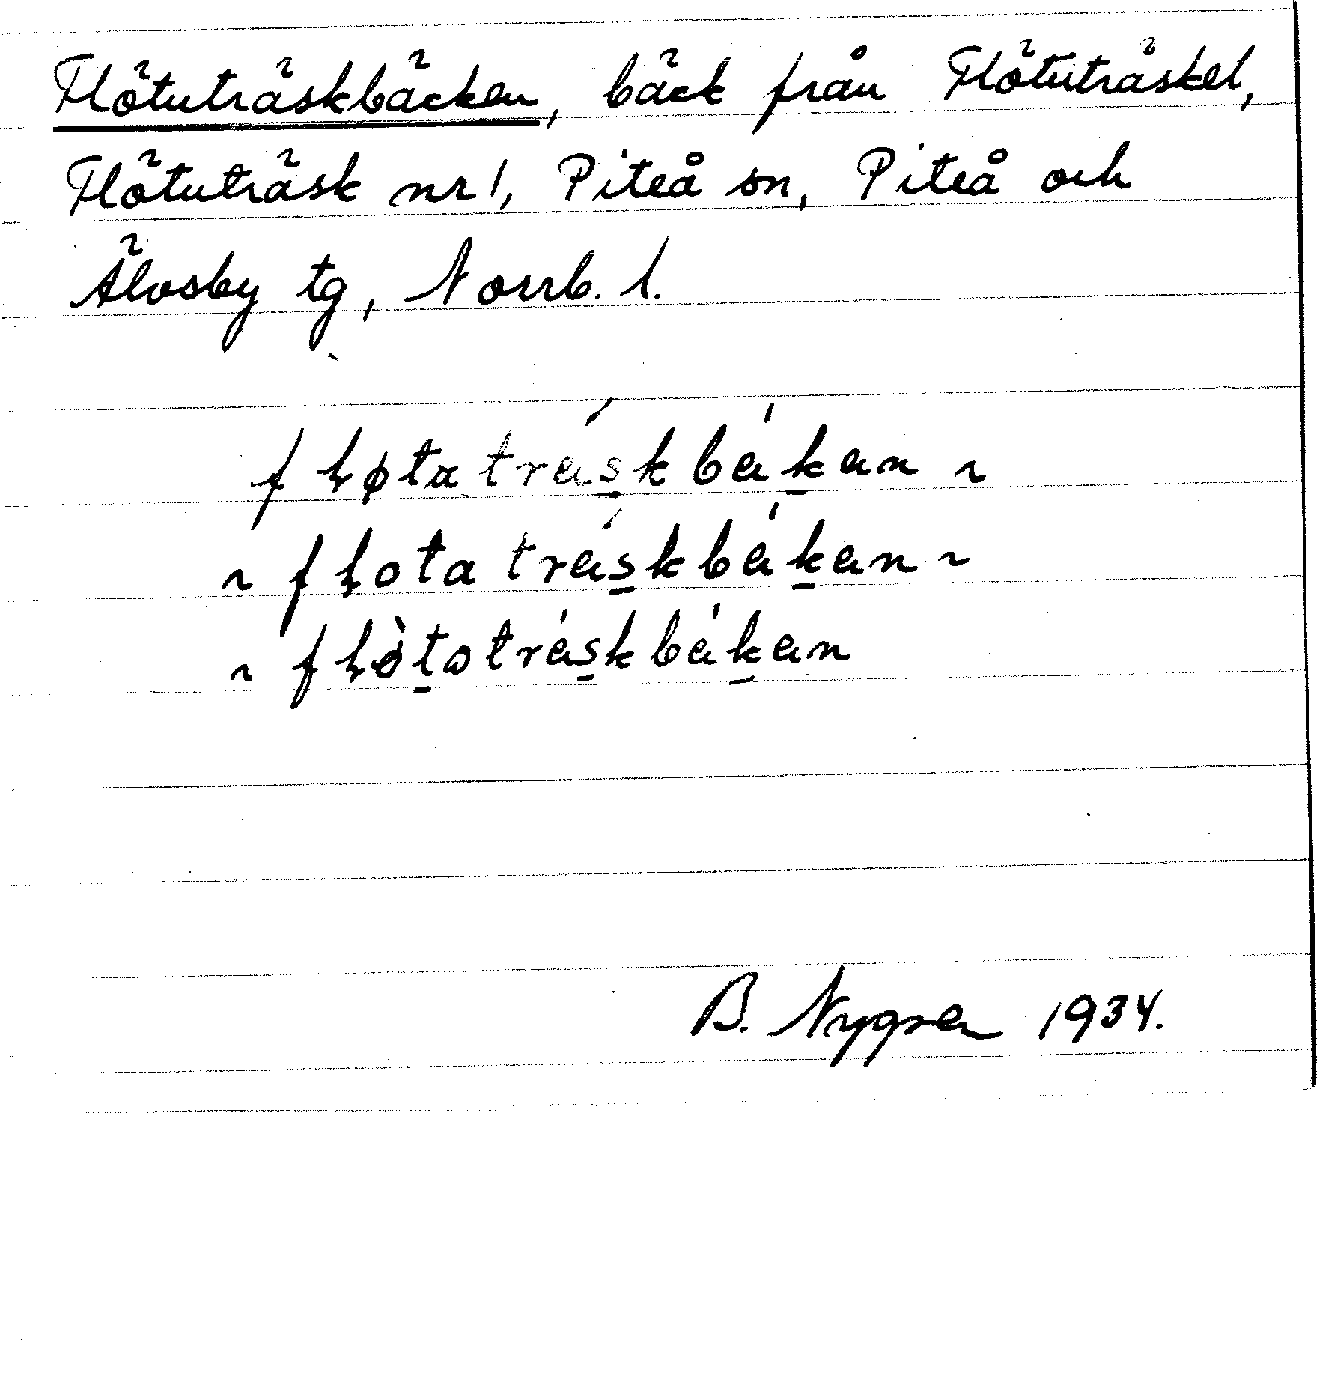 Flötuträskbäcken, bäck från Flötuträsket,
Flötuträsk nr 1, Piteå sn, Piteå och
Älvsby tg, Norrb. l.
fłøtatrás̲kbák̲an ~
~ fłotatrás̲kbák̲an ~
~ fłòt̲otrás̲kbák̲an
B. Nygren 1934.